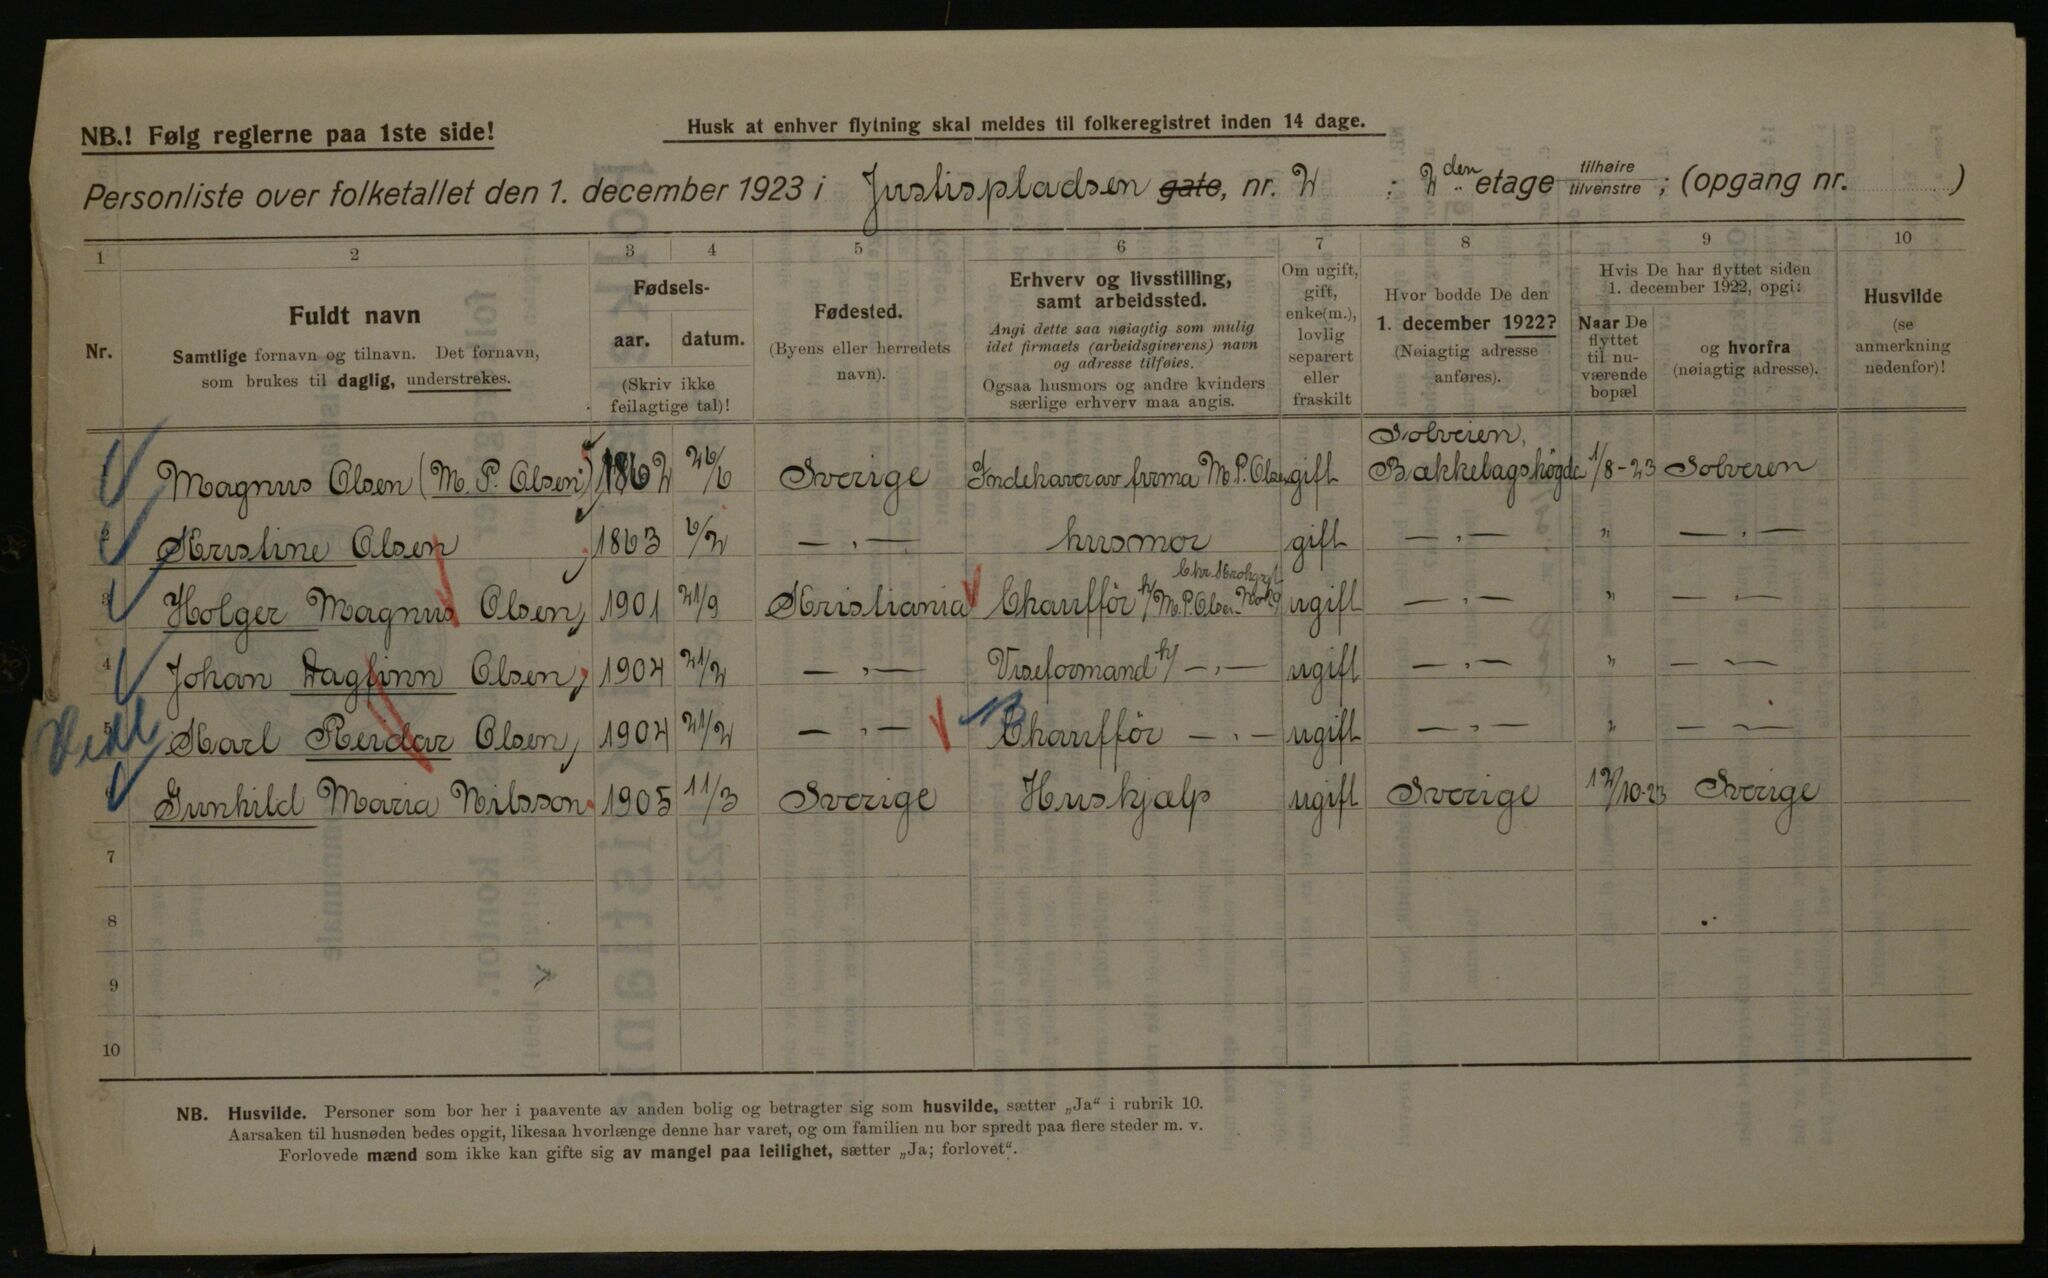 NB.! Følg reglerne paa 1ste side!
Husk at enhver flytning skal meldes til folkeregistret inden 14 dage.
Personliste over folketallet den 1. december 1923 i Justispladsen gate, nr. 2 ; 2den etage tilhøire tilvenstre ; (opgang nr. )
1 2 3 4 5 6 7 8 9 10
Nr.
Fuldt navn
Samtlige fornavn og tilnavn. Det fornavn,
som brukes til daglig, understrekes.
Fødsels-
aar. datum.
(Skriv ikke
feilagtige tal)!
Fødested.
(Byens eller herredets
navn).
Erhverv og livsstilling,
samt arbeidssted.
Angi dette saa nøiagtig som mulig
idet firmaets (arbeidsgiverens) navn
og adresse tilføies.
Ogsaa husmors og andre kvinders
særlige erhverv maa angis.
Om ugift,
gift,
enke(m.),
lovlig
separert
eller
fraskilt
Hvor bodde De den
1. december 1922?
(Nøiagtig adresse
anføres).
Hvis De har flyttet siden
1. december 1922, opgi:
Naar De
flyttet
til nu-
værende
bopæl
og hvorfra
(nøiagtig adresse).
Husvilde
(se
anmerkning
nedenfor)!
Solveien,
Magnus Olsen (M. P. Olsen) 1862 26/6 Sverige Indehaver av firma M.P. Olsen gift Bækkelagshögda 1/8-23 Solveien
2 Kristine Olsen 1863 6/2 — „ — husmor gift — „ — „ — „ —
3 Holger Magnus Olsen, 1901 21/9 Kristiania Chaufför h/ M.P. Olsen ugift — „ — „ — „ —
4 Johan Dagfinn Olsen, 1904 21/2 — „ — Viseformand h/ — „ — ugift — „ — „ — „ —
5 Karl Reidar Olsen, 1904 21/2 — „ — Chaufför — „ — ugift — „ — „ — „ —
6 Gunhild Maria Nilsson 1905 11/3 Sverige Huskjælp ugift Sverige 12/10-23 Sverige
7
8
9
10
NB. Husvilde. Personer som bor her i paavente av anden bolig og betragter sig som husvilde, sætter „Ja“ i rubrik 10.
Aarsaken til husnøden bedes opgit, likesaa hvorlænge denne har varet, og om familien nu bor spredt paa flere steder m. v.
Forlovede mænd som ikke kan gifte sig av mangel paa leilighet, sætter „Ja; forlovet“.